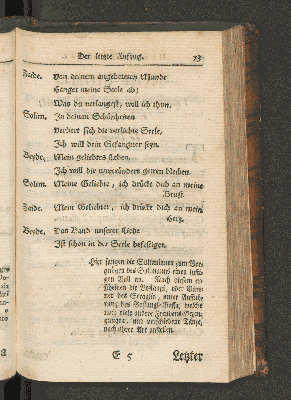 Der letzte Aufzug. 73
Zaide. Von deinem angebeteten Munde
Hanget meine Seele ab;
Was du verlangest, will ich thun.
Solim. In deinen Schönheiten
Verliert sich die verliebte Seele,
Ich will dein Gefangner seyn.
Beyde. Mein geliebtes Leben.
Ich will dir unverändert getreu bleiben.
Solim. Meine Geliebte, ich drücke dich an meine
Brust.
Zaide. Mein Geliebter, ich drücke dich an mein
Herz.
Beyde. Das Band unserer Liebe
Ist schon in der Seele befestiget.
Hier fangen die Sultaninnen zum Ver-
gnügen des Solimanns einen lusti-
gen Ball an. Nach diesem er-
scheinen die Bostangi, oder Gärt-
ner des Serails, unter Anführ-
ung des
welche
und verschiedene Tänze,
nach ihrer Art anstellen.
E 5 Letzter